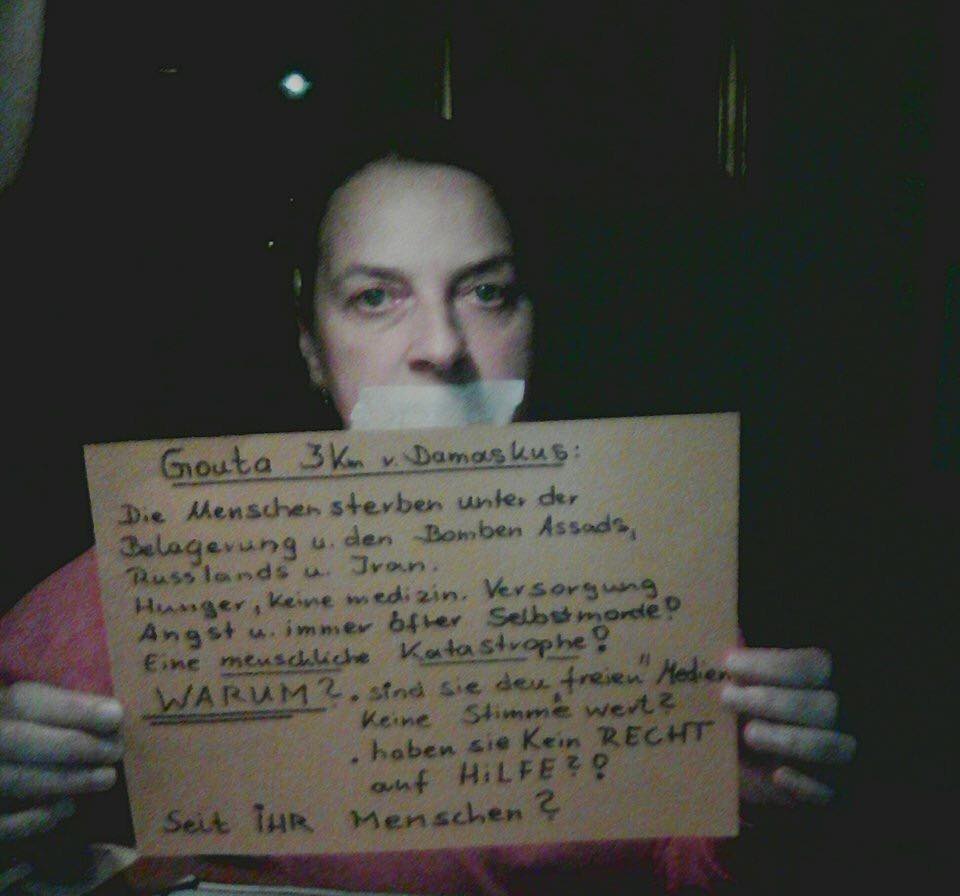 Gouta 3Km v. Damaskus:
Die Menschen sterben unter der
Belagerung u. den Bomben Assads,
Russlands u. Iran.
Hunger, keine medizin. Versorgung
Angst u. immer öfter Selbstmorde!
Eine menschliche Katastrophe!
WARUM? . sind sie den "freien" Medien
keine Stimme wert?
. haben sie kein RECHT
auf HiLFE?!
Seit iHR Menschen?